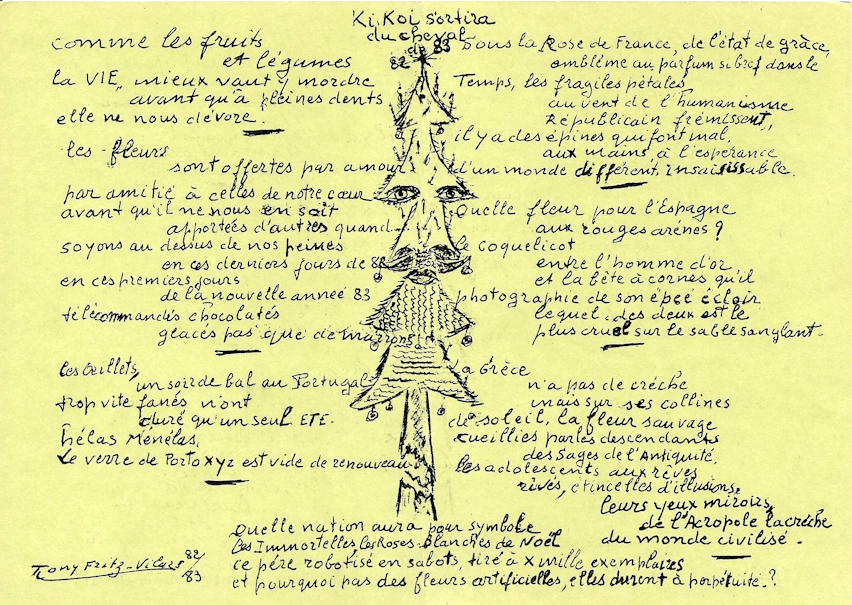 Ki Koi sortira
du cheval
de 83
82
comme les fruits
et légumes
la VIE, mieux vaut y mordre
avant qu'à pleines dents
elle ne nous dévore.
les fleurs
sont offertes par amour
par amitié à celles de notre cœur
avant qu'il ne nous en soit
apportées d'autres quand
soyons au dessus de nos peines
en ces derniers jours de 82
en ces premiers jours
de la nouvelle année 83
télécommandés chocolatés
glacés pas que de marrons
les Œillets,
un soir de bal au Portugal
trop vite fanés n'ont
duré qu'un seul ETE.
hélas Ménélas,
le verre de Porto xyz est vide de renouveau.
Sous la Rose de France, de l'état de grâce,
emblème au parfum si bref dans le
Temps, les fragiles pétales
au vent de l'humanisme
Républicain frémissent,
il y a des épines qui font mal,
aux mains, à l'espérance
d'un monde différent, insaisissable.
Quelle fleur pour l'Espagne
aux rouges arènes ?
le coquelicot
entre l'homme d'or
et la bête à cornes qu'il
photographie de son épée éclair
lequel des deux est le
plus cruel sur le sable sanglant.
La Grèce
n'a pas de crèche
mais sur ses collines
de soleil, la fleur sauvage
cueillies par les descendants
des Sages de l'Antiquité.
les adolescents aux rêves
rivés, étincelles d'illusions,
leurs yeux miroirs,
de l'Acropole la crèche
du monde civilisé.
Quelle nation aura pour symbole
les Immortelles, les Roses-blanches de Noël
ce père robotisé en sabots, tiré à x mille exemplaires
et pourquoi pas des fleurs artificielles, elles durent à perpétuité.?
Tony Fritz-Vilars 82/83